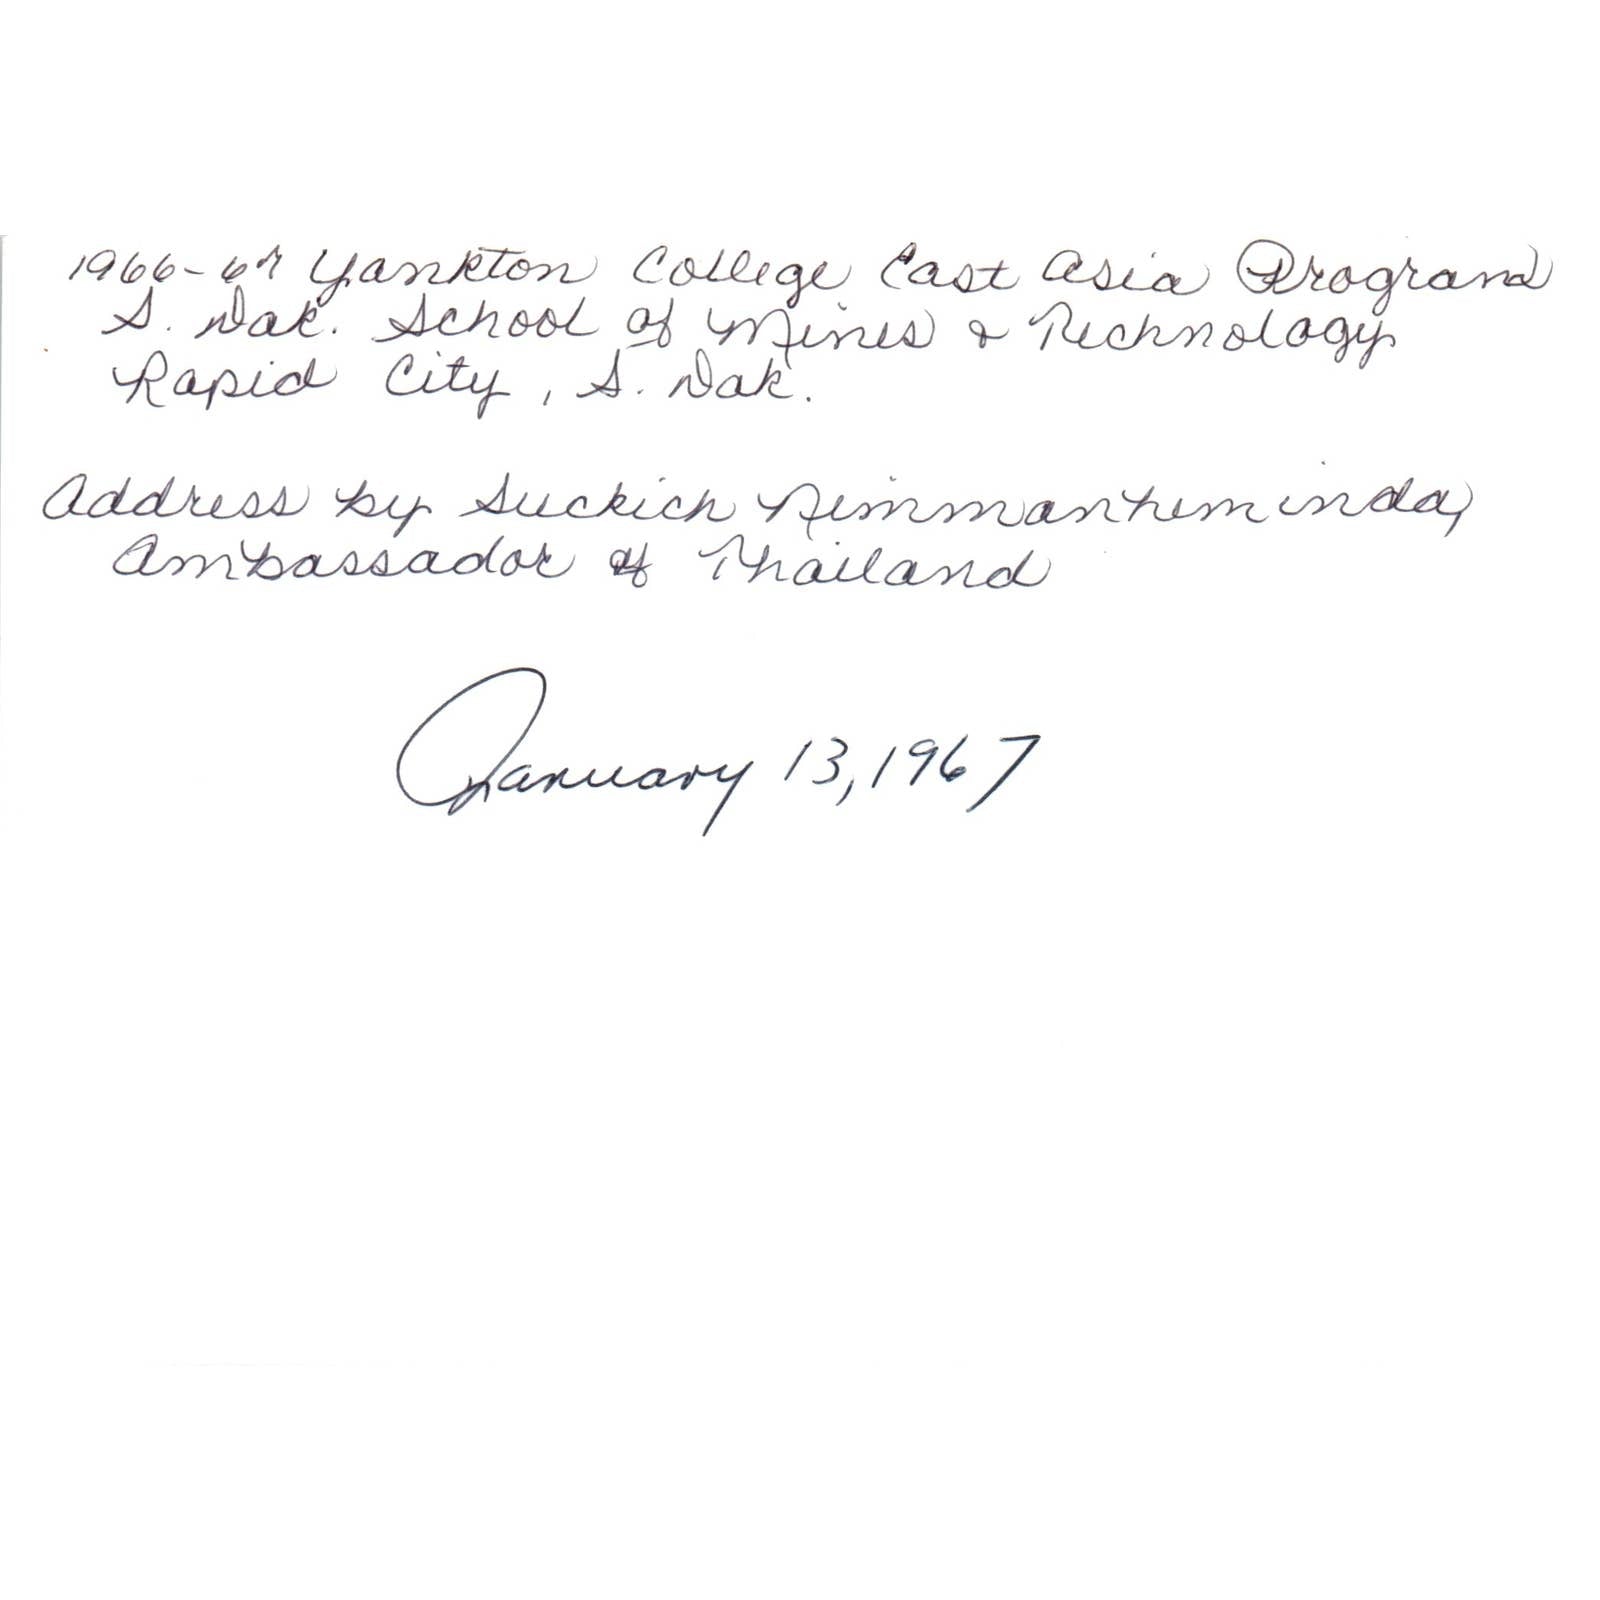 1966-67 Yankton College East Asia Program
S. Dak. School of Mines & Technology
Rapid City, S. Dak.
Address by Suckich Nimmanheminda,
Ambassador of Thailand
January 13, 1967